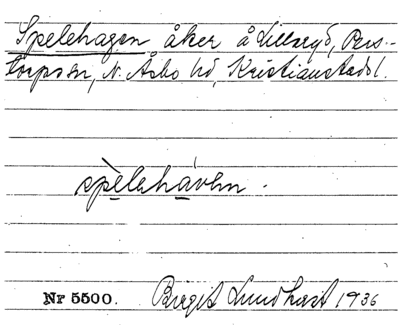 Spelehagen åker å Lillaryd, Pers-
torps sn, N. Åsbo hd, Kristianstads l.
spèlehávἑn.
Nr 5500. Birgit Lundkvist 1936